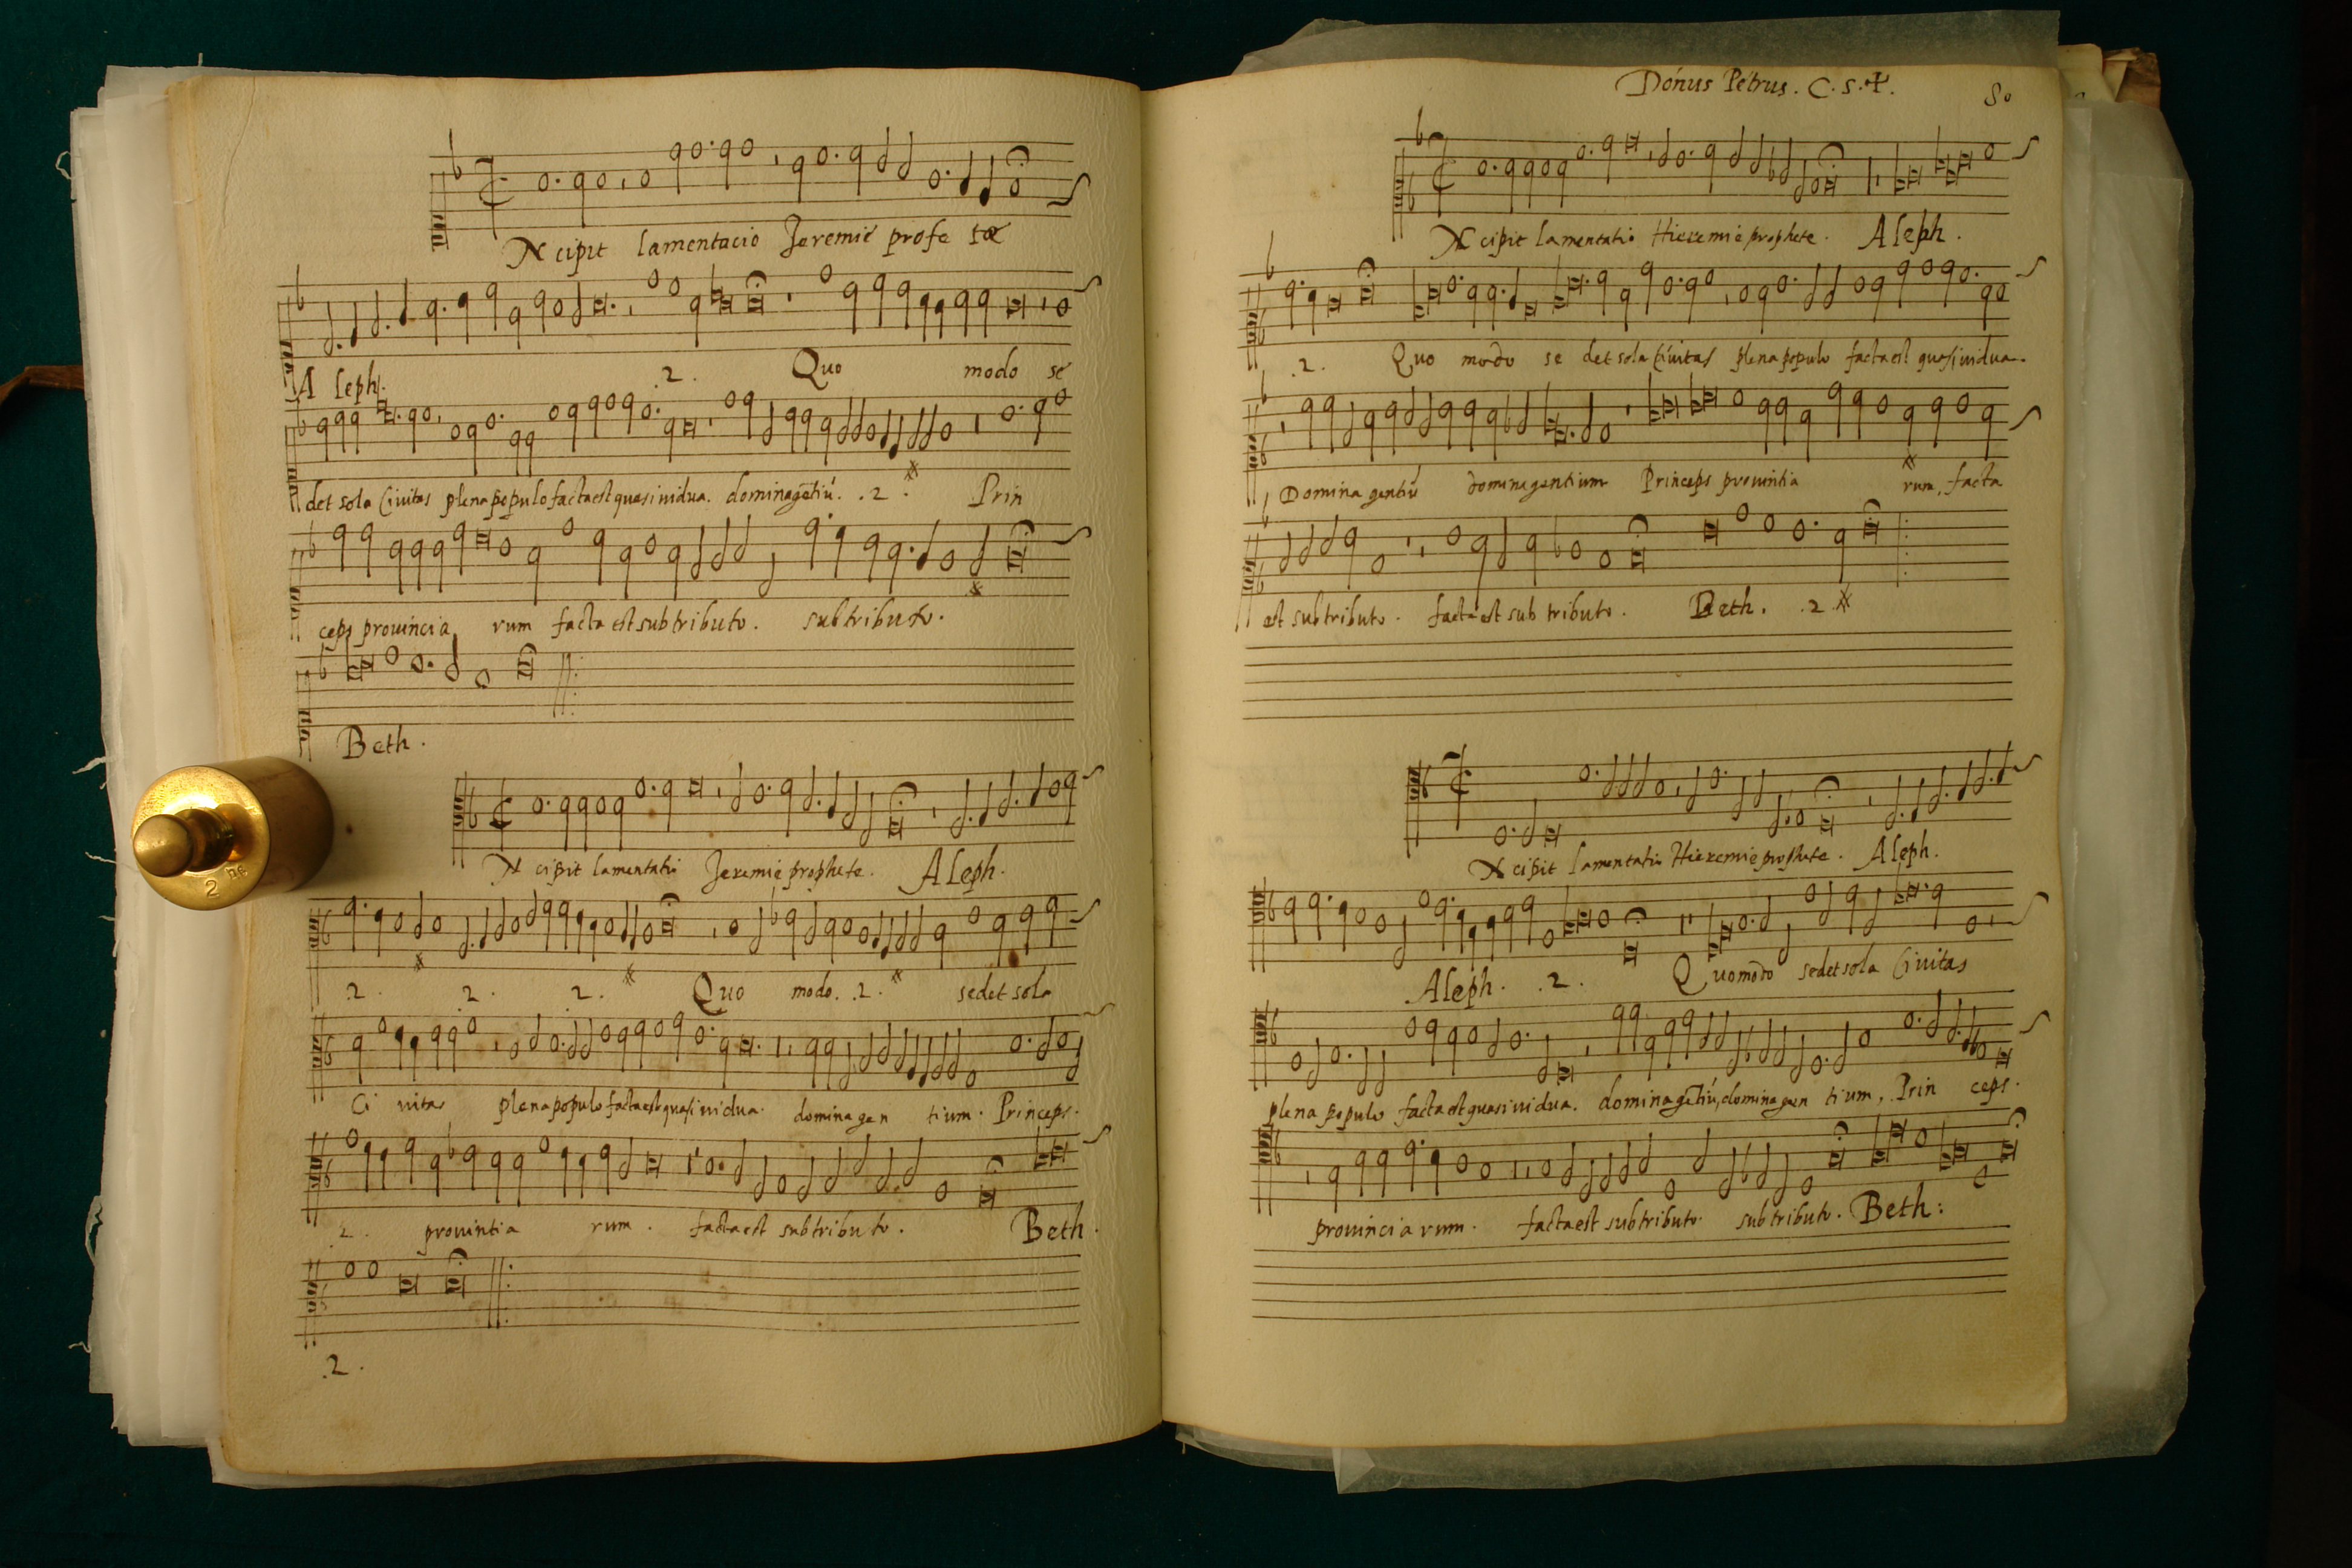 Incipit lamentacio Jeremie profe tæ
A leph. .2. Quo modo se
det sola Civitas plena populo facta est quasi vidua. domina gẽtiũ. .2. Prin
ceps provincia rum facta est sub tributo. sub tributo.
Beth.
Incipit lamentatio Jeremie prophete. Aleph.
.2. .2. .2. Quo modo. .2. sedet sola
Ci vitas plena populo facta est quasi vidua. domina gen tium. Princeps.
.2. provintia rum. facta est sub tributo. Beth.
.2.
Donus Petrus. C. S. ✝.
80
Incipit lamentatio Hieremie prophete. Aleph.
.2. Quo modo se det sola Civitas plena populo facta est quasi vidua.
Domina gentiũ domina gentium Princeps provintia rum, facta
est sub tributo. facta est sub tributo. Beth. .2.
Incipit lamentatio Hieremie prophete. Aleph.
Aleph. .2. Quomodo sedet sola Civitas
plena populo facta est quasi vidua. domina gẽtiũ, domina gen tium, Prin ceps.
provincia rum. facta est sub tributo. sub tributo. Beth:
2 HG